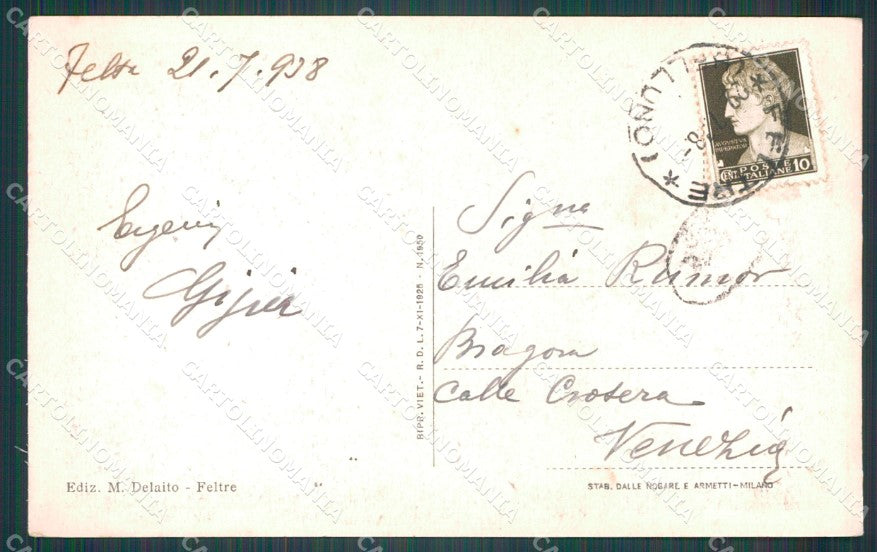 Feltre 21.7.938
Eugenio
Gigia
FELTRE * (BELLUNO) *
AUGUSTUS
IMPERATOR
POSTE
ITALIANE 10
CENT
Sigra
Emilia Rumor
Bragora
Calle Crosera
Venezia
RIPR. VIET. - R. D. L. 7-XI-1925 - N. 1950
Ediz. M. Delaito - Feltre
STAB. DALLE NOGARE E ARMETTI - MILANO
CARTOLINOMANIA